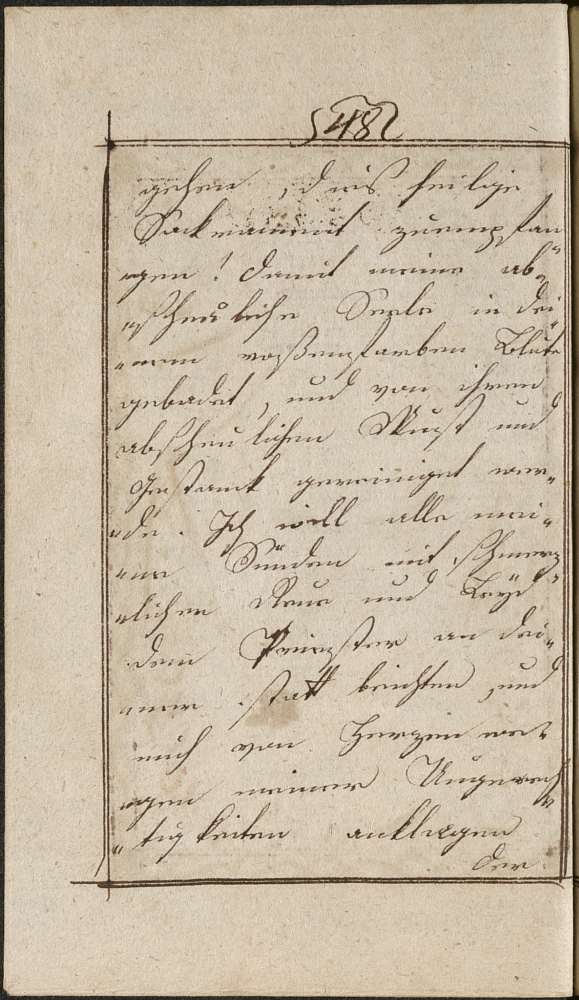 48
gehen, das heilige
Sackrament zuempfan
„gen! damit meine ab„
„scheuliche Seele in dei
„nem rosenfarben Blute
gebadet, und von ihren
abscheulichen Wust und
Gestanck gereiniget wer„
„de. Ich will alle mei„
„ne Sünden mit schmerz
„licher Reue und Leyd
dem Priester an dei„
„ner statt beichten, und
mich von Herzen we„
„gen meiner Ungerech
„tigkeiten anklagen
der